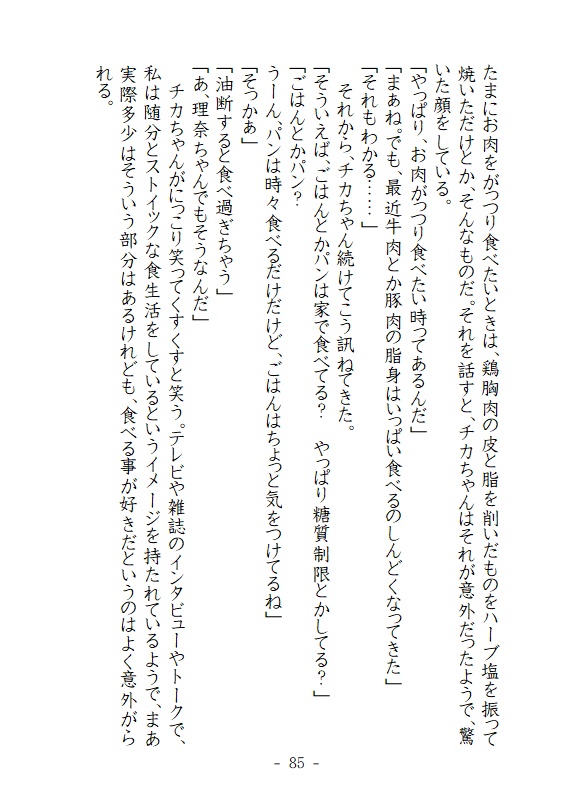 たまにお肉をがっつり食べたいときは、鶏胸肉の皮と脂を削いだものをハーブ塩を振って
焼いただけとか、そんなものだ。それを話すと、チカちゃんはそれが意外だったようで、驚
いた顔をしている。
「やっぱり、お肉がっつり食べたい時ってあるんだ」
「まぁね。でも、最近牛肉とか豚肉の脂身はいっぱい食べるのしんどくなってきた」
「それもわかる……」
　それから、チカちゃん続けてこう訊ねてきた。
「そういえば、ごはんとかパンは家で食べてる？　やっぱり糖質制限とかしてる？」
「ごはんとかパン？
うーん、パンは時々食べるだけだけど、ごはんはちょっと気をつけてるね」
「そっかぁ」
「油断すると食べ過ぎちゃう」
「あ、理奈ちゃんでもそうなんだ」
　チカちゃんがにっこり笑ってくすくすと笑う。テレビや雑誌のインタビューやトークで、
私は随分とストイックな食生活をしているというイメージを持たれているようで、まあ
実際多少はそういう部分はあるけれども、食べる事が好きだというのはよく意外がら
れる。
- 85 -